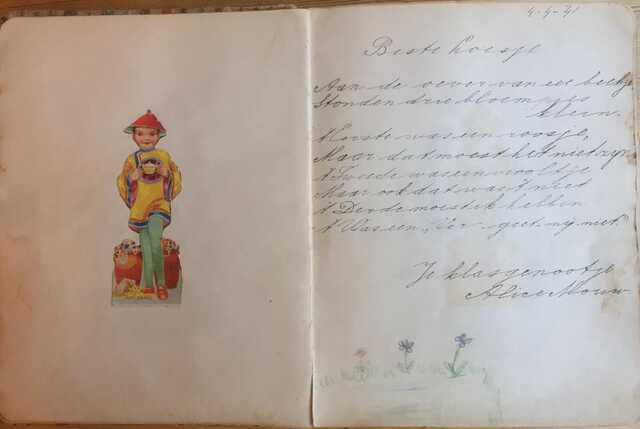 4-4-41
Beste Loesje
Aan de oever van een beekje
Stonden drie bloempjes
klein.
't Eerste was een roosje,
Maar dat moest het niet zijn
't Tweede was een viooltje
Maar ook dat was 't niet
't Derde moest ik hebben
't Was een „Ver-geet-mij-niet."
Je klasgenootje
Alice Mouw